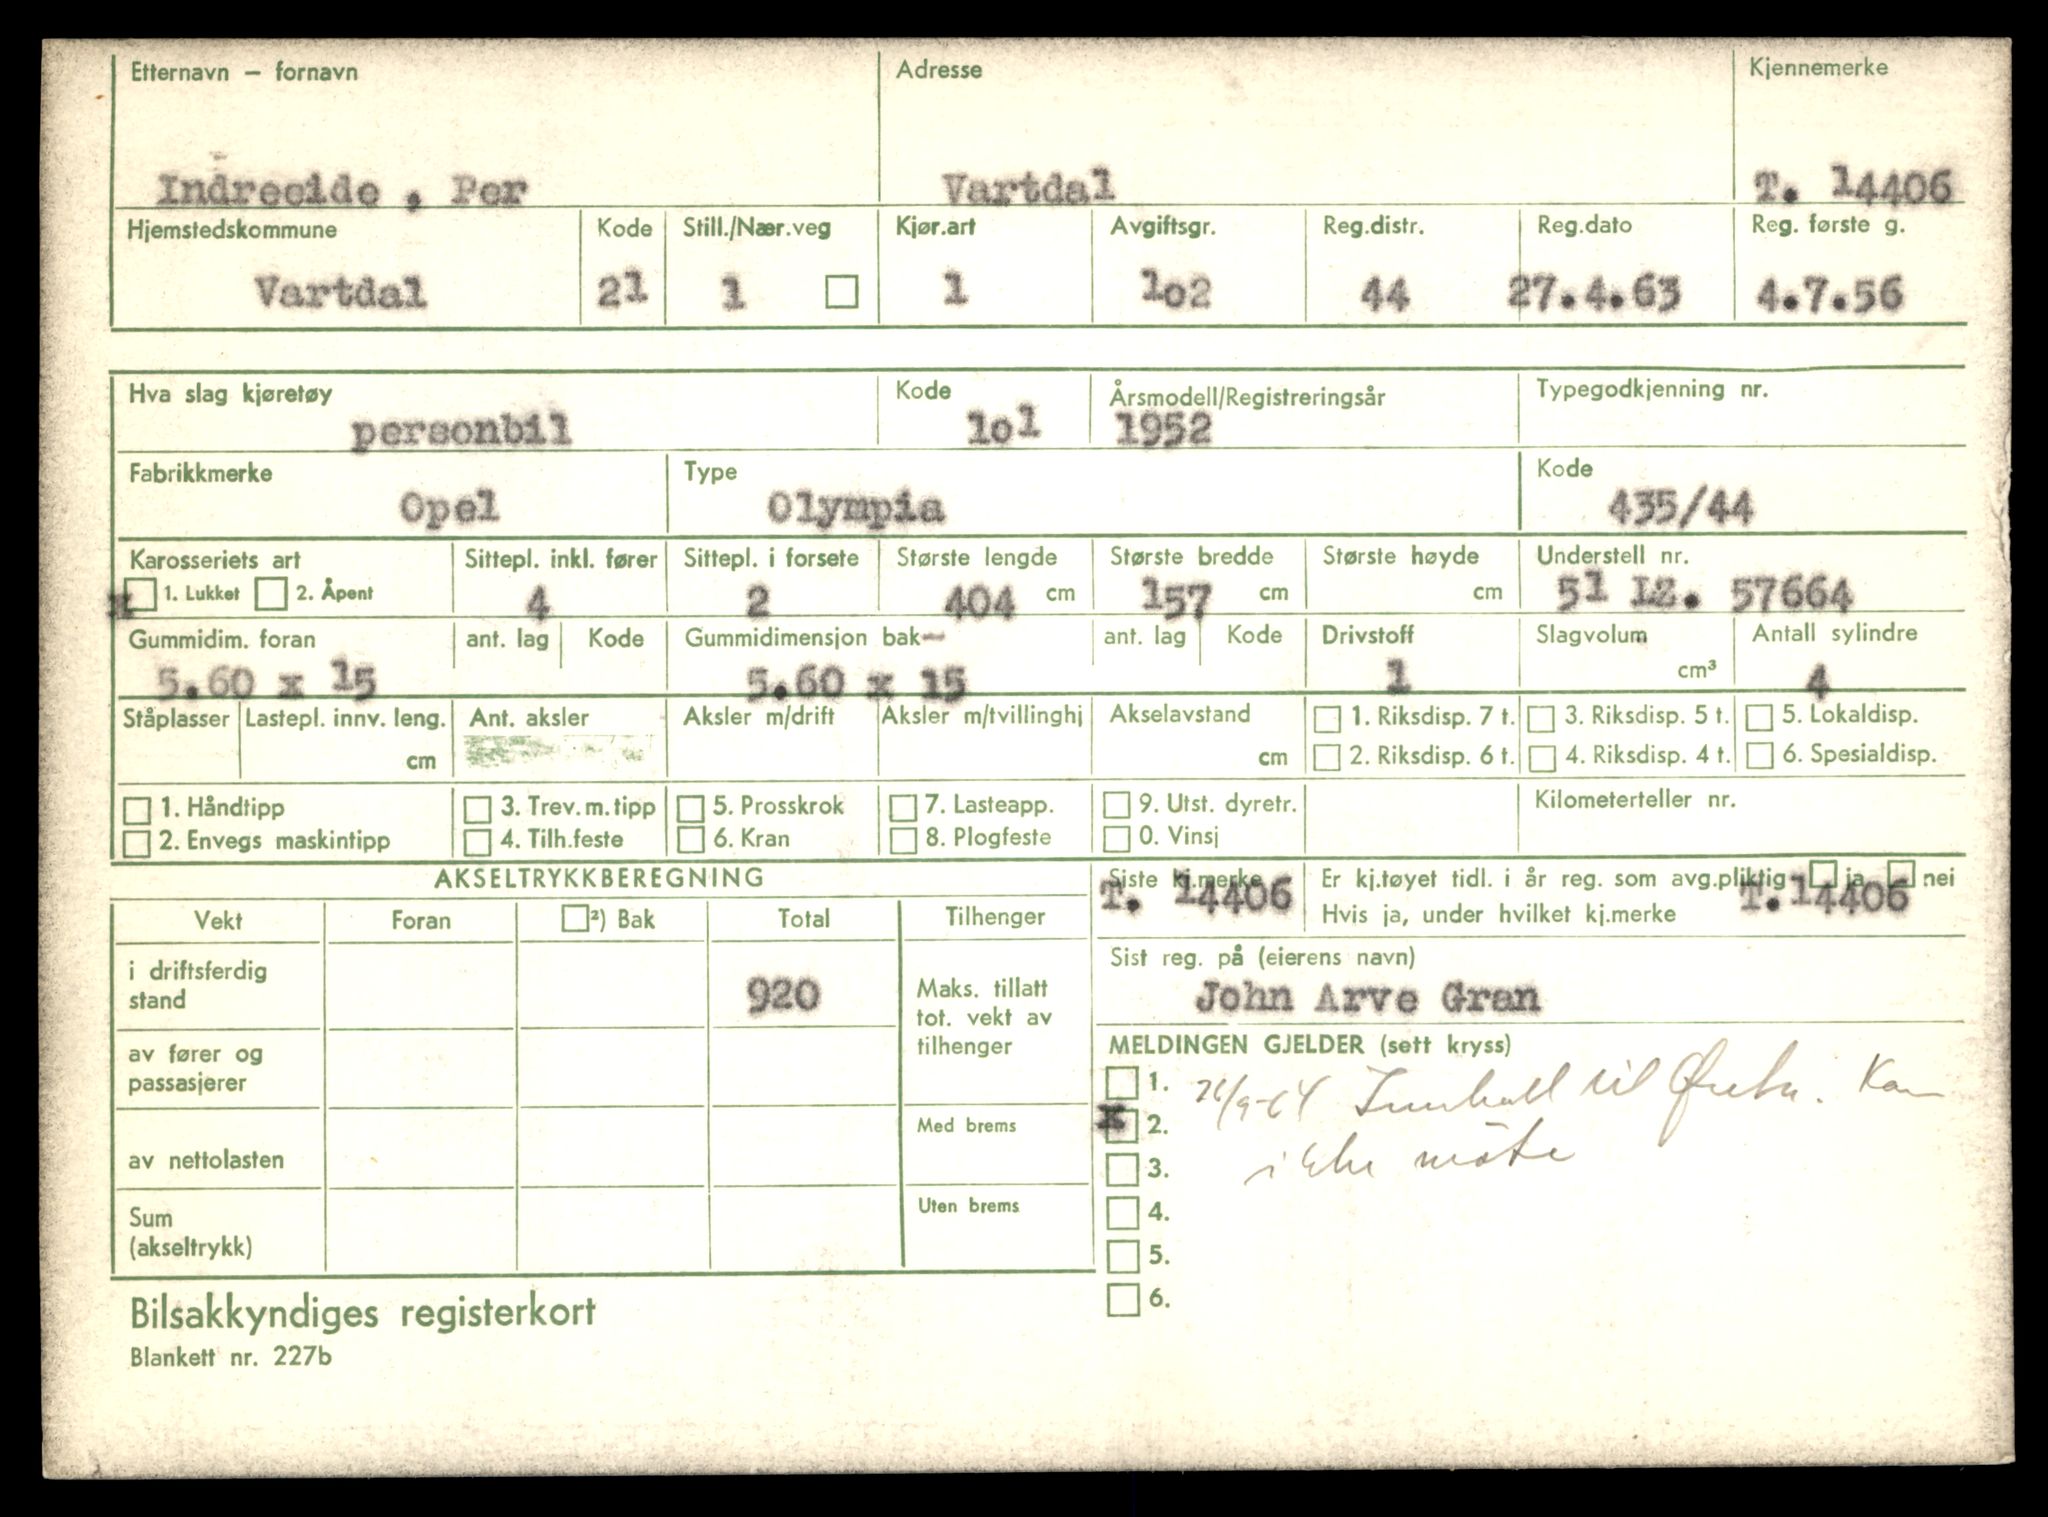 Etternavn – fornavn Adresse Kjennemerke
Indreeide . Per Vartdal T. 14406
Hjemstedskommune Kode Still./Nær.veg Kjør.art Avgiftsgr. Reg.distr. Reg.dato Reg. første g.
Vartdal 21 1 1 1o2 44 27.4.63 4.7.56
Hva slag kjøretøy Kode Årsmodell/Registreringsår Typegodkjenning nr.
personbil 1o1 1952
Fabrikkmerke Type Kode
Opel Olympia 435/44
Karosseriets art Sittepl. inkl. fører Sittepl. i forsete Største lengde Største bredde Største høyde Understell nr.
x 1. Lukket 2. Åpent 4 2 404 cm 157 cm cm 51 LZ. 57664
Gummidim. foran ant. lag Kode Gummidimensjon bak— ant. lag Kode Drivstoff Slagvolum Antall sylindre
5.60 x 15 5.60 x 15 1 cm³ 4
Ståplasser Lastepl. innv. leng. Ant. aksler Aksler m/drift Aksler m/tvillinghj Akselavstand 1. Riksdisp. 7 t. 3. Riksdisp. 5 t. 5. Lokaldisp.
cm cm 2. Riksdisp. 6 t. 4. Riksdisp. 4 t. 6. Spesialdisp.
1. Håndtipp 3. Trev.m.tipp 5. Prosskrok 7. Lasteapp. 9. Utst. dyretr. Kilometerteller nr.
2. Envegs maskintipp 4. Tilh.feste 6. Kran 8. Plogfeste 0. Vinsj
AKSELTRYKKBEREGNING Siste kj.merke Er kj.tøyet tidl. i år reg. som avg.pliktig ja nei
T. 14406 Hvis ja, under hvilket kj.merke T.14406
Vekt Foran ²) Bak Total Tilhenger
Sist reg. på (eierens navn)
John Arve Gran
i driftsferdig
stand 920
Maks. tillatt
tot. vekt av
tilhenger
av fører og
passasjerer
Med brems
av nettolasten
Uten brems
Sum
(akseltrykk)
MELDINGEN GJELDER (sett kryss)
1. 26/9-64 Innkall til Ørsta. Kan
x 2.
ikke møte
3.
4.
5.
6.
Bilsakkyndiges registerkort
Blankett nr. 227b